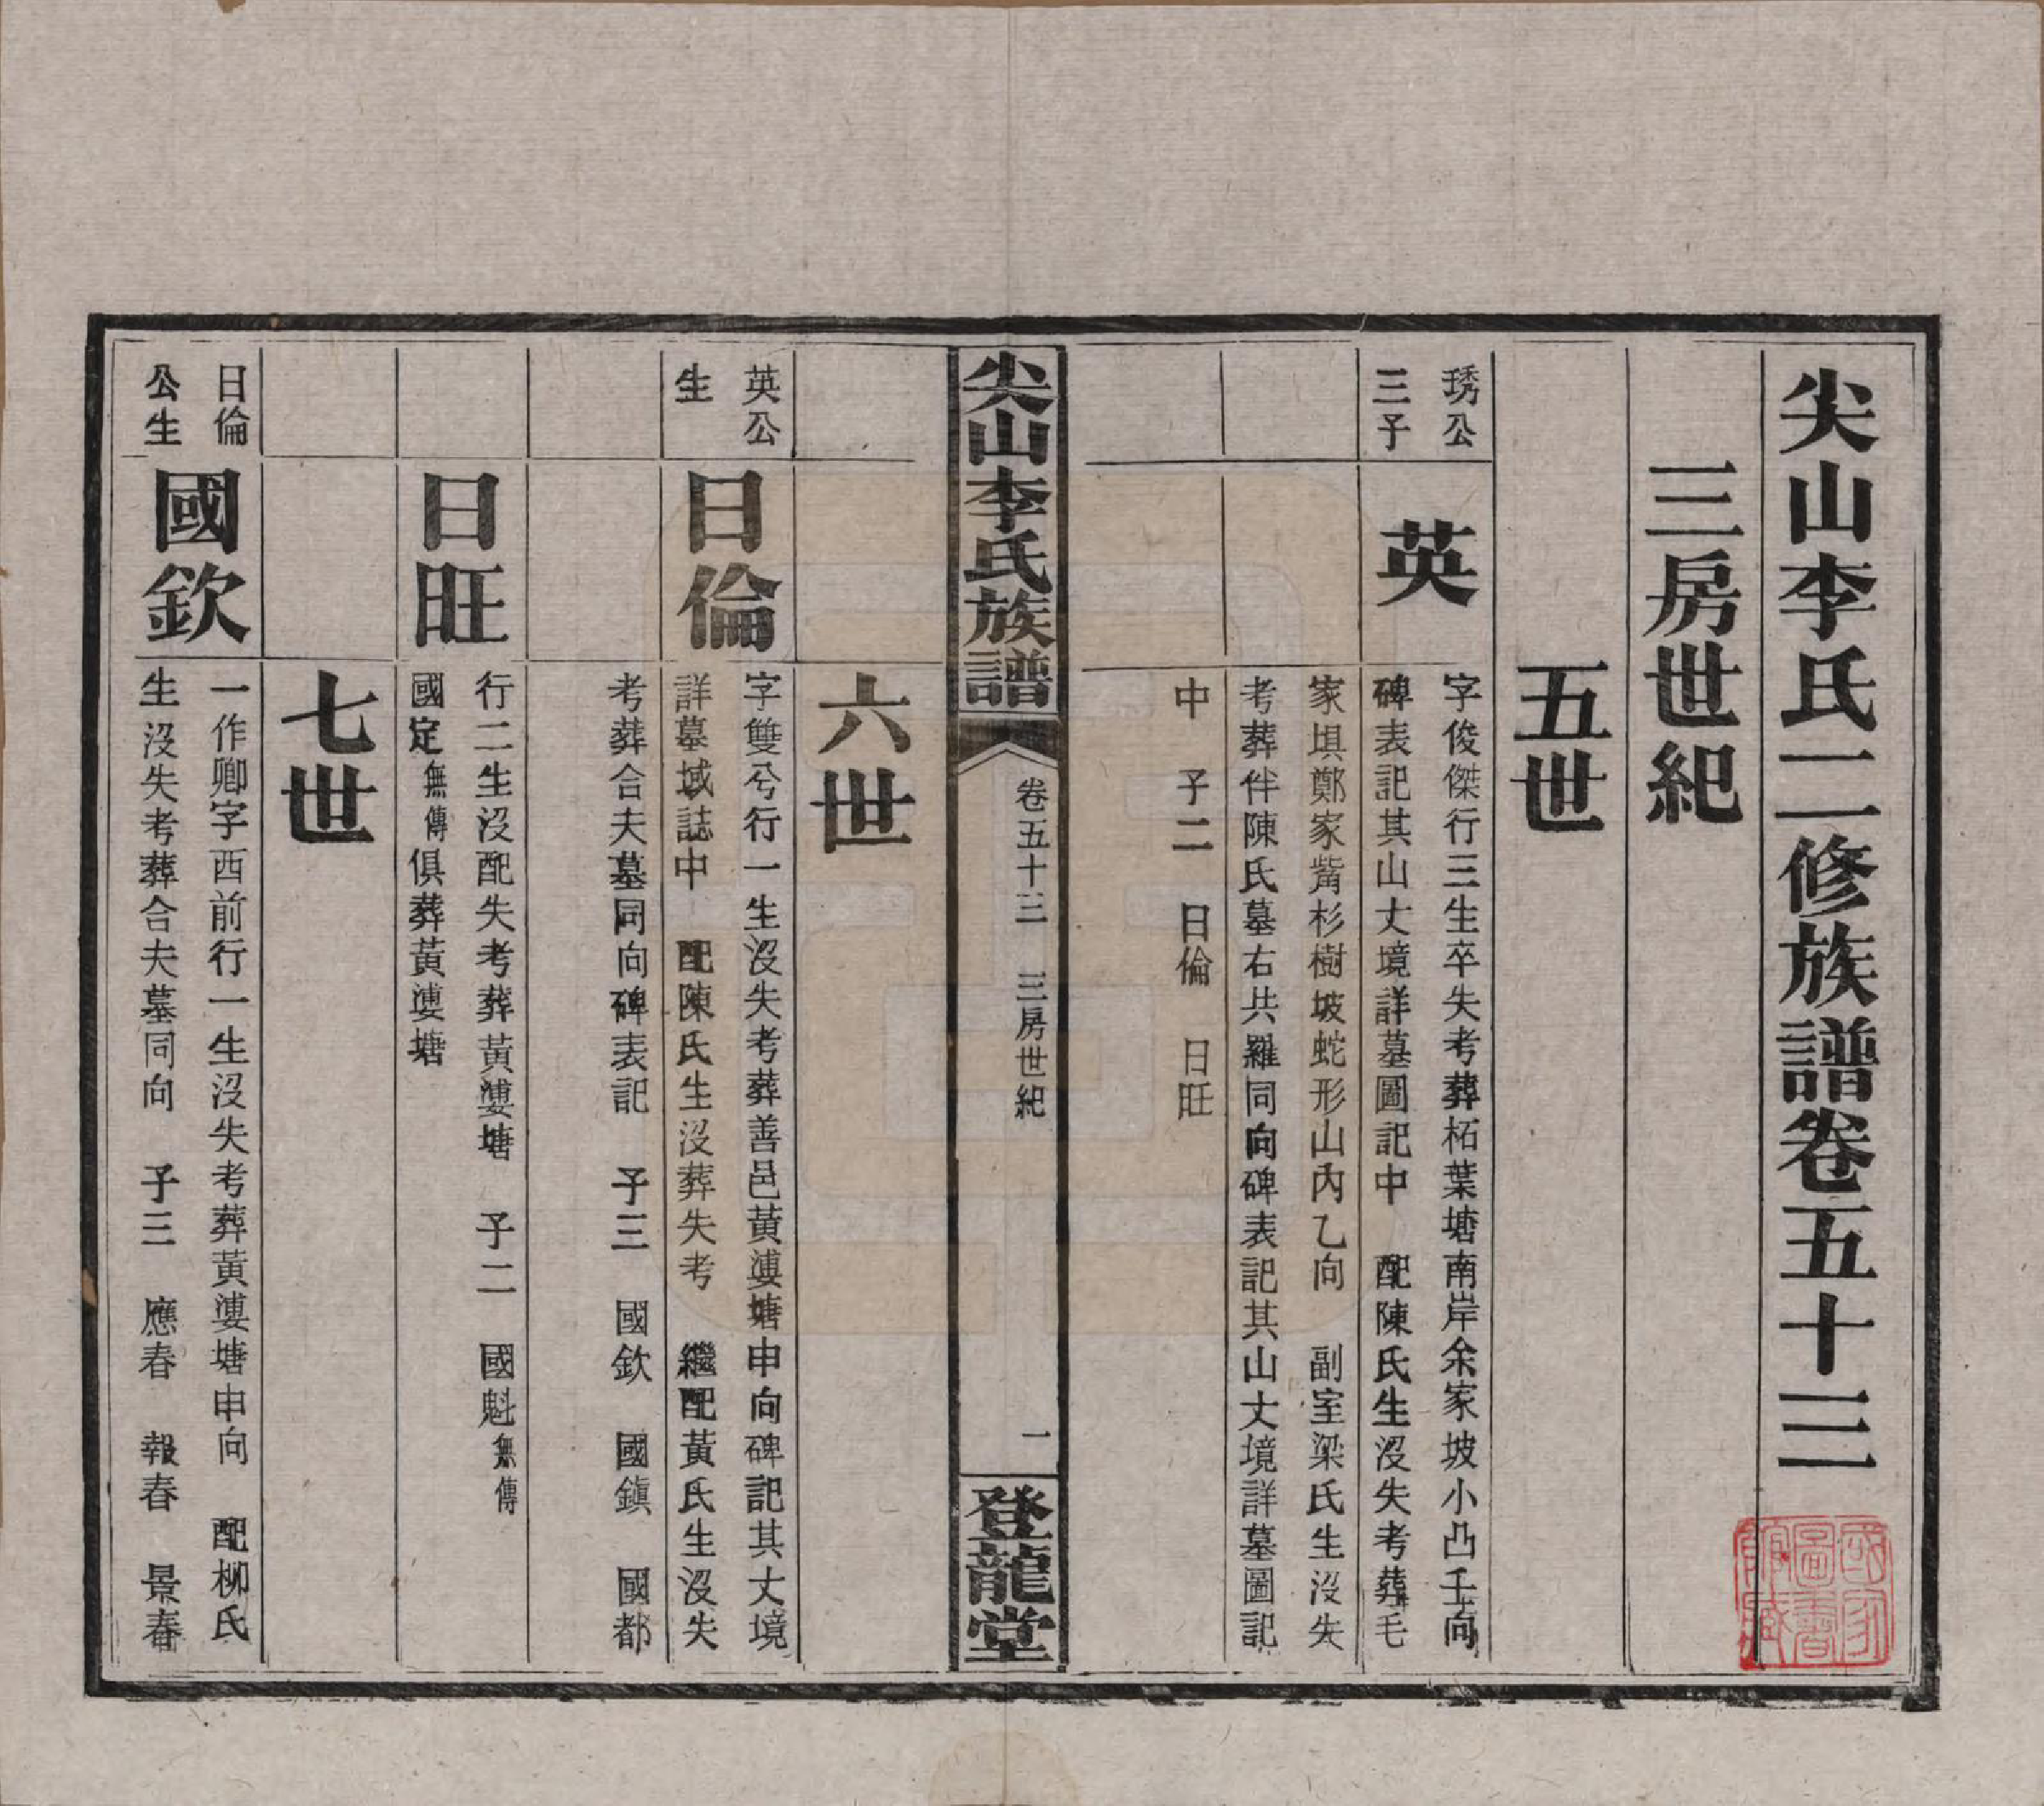 尖山李氏二修族譜卷五十三
三房世紀
五世
琇公
三子
英
字俊傑行三生卒失考葬柘葉塘南岸余家坡小凸壬向
碑表記其山丈境詳墓圖記中 配陳氏生沒失考葬毛
家埧鄭家觜杉樹坡蛇形山內乙向 副室梁氏生沒失
考葬伴陳氏墓右共羅同向碑表記其山丈境詳墓圖記
中 子二 日倫 日旺
尖山李氏族譜
卷五十三 三房世紀
一
登龍堂
六世
英公
生
日倫
字雙兮行一生沒失考葬善邑黃漊塘申向碑記其丈境
詳墓域誌中 配陳氏生沒葬失考 繼配黃氏生沒失
考葬合夫墓同向碑表記 子三 國欽 國鎮 國都
日旺
行二生沒配失考葬黃漊塘 子二 國魁無傳
國定無傳俱葬黃漊塘
七世
日倫
公生
國欽
一作卿字西前行一生沒失考葬黃漊塘申向 配柳氏
生沒失考葬合夫墓同向 子三 應春 報春 景春
國家
圖書
館藏